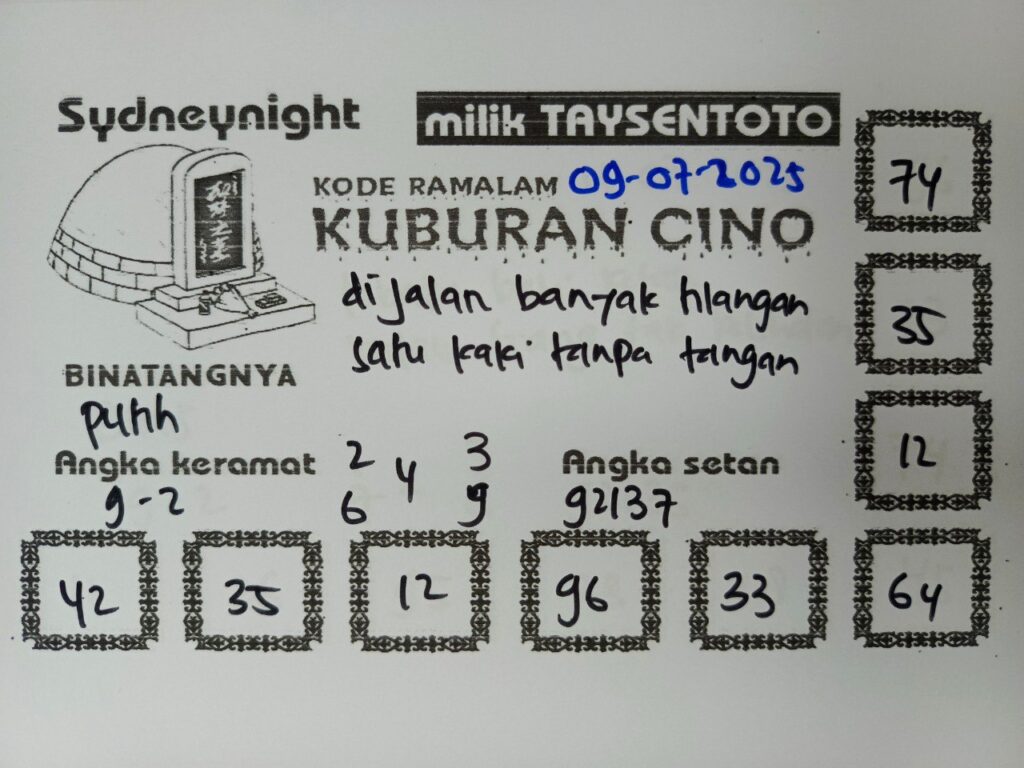 Sydneynight
milik TAYSENTOTO
KODE RAMALAM 09-07-2025
KUBURAN CINO
di jalan banyak hlangan
satu kaki tanpa tangan
BINATANGNYA
Angka keramat
9-2
2 3
4
6 9
Angka setan
92137
74
35
12
42 35 12 96 33 64